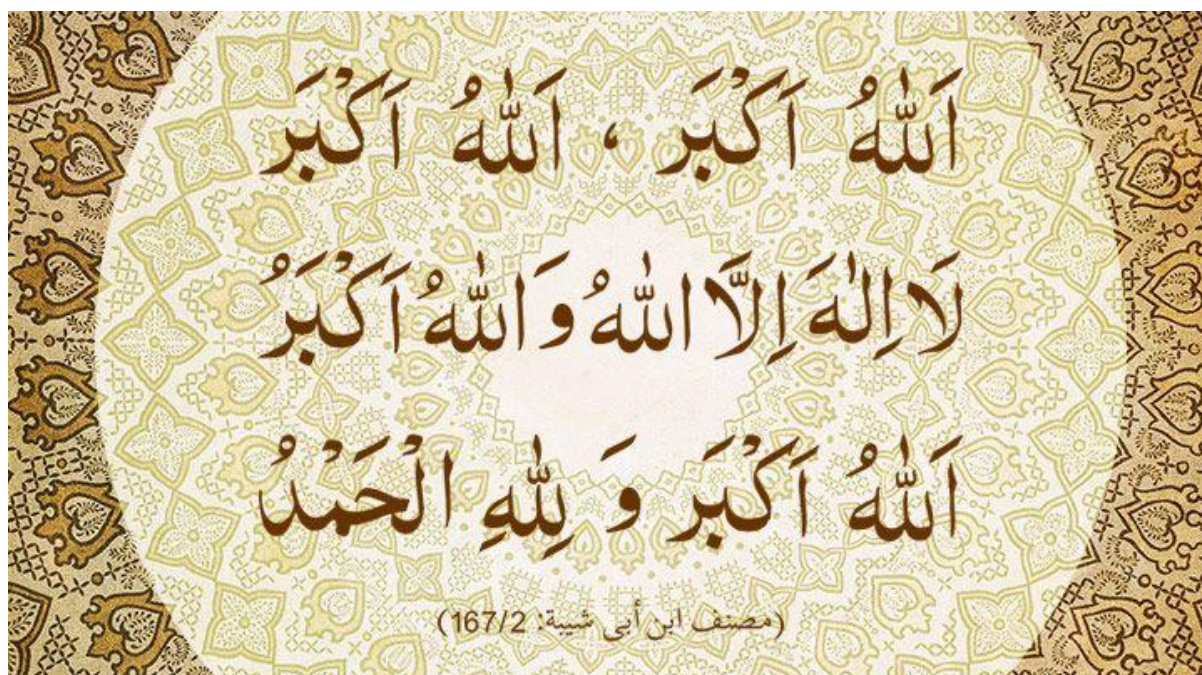 اَللّٰهُ اَكْبَر ، اَللّٰهُ اَكْبَر
لَا اِلٰهَ اِلَّا اللّٰهُ وَاللّٰهُ اَكْبَرُ
اَللّٰهُ اَكْبَر وَ لِلّٰهِ الْحَمْدُ
(مصنف ابن أبى شيبة: 167/2)